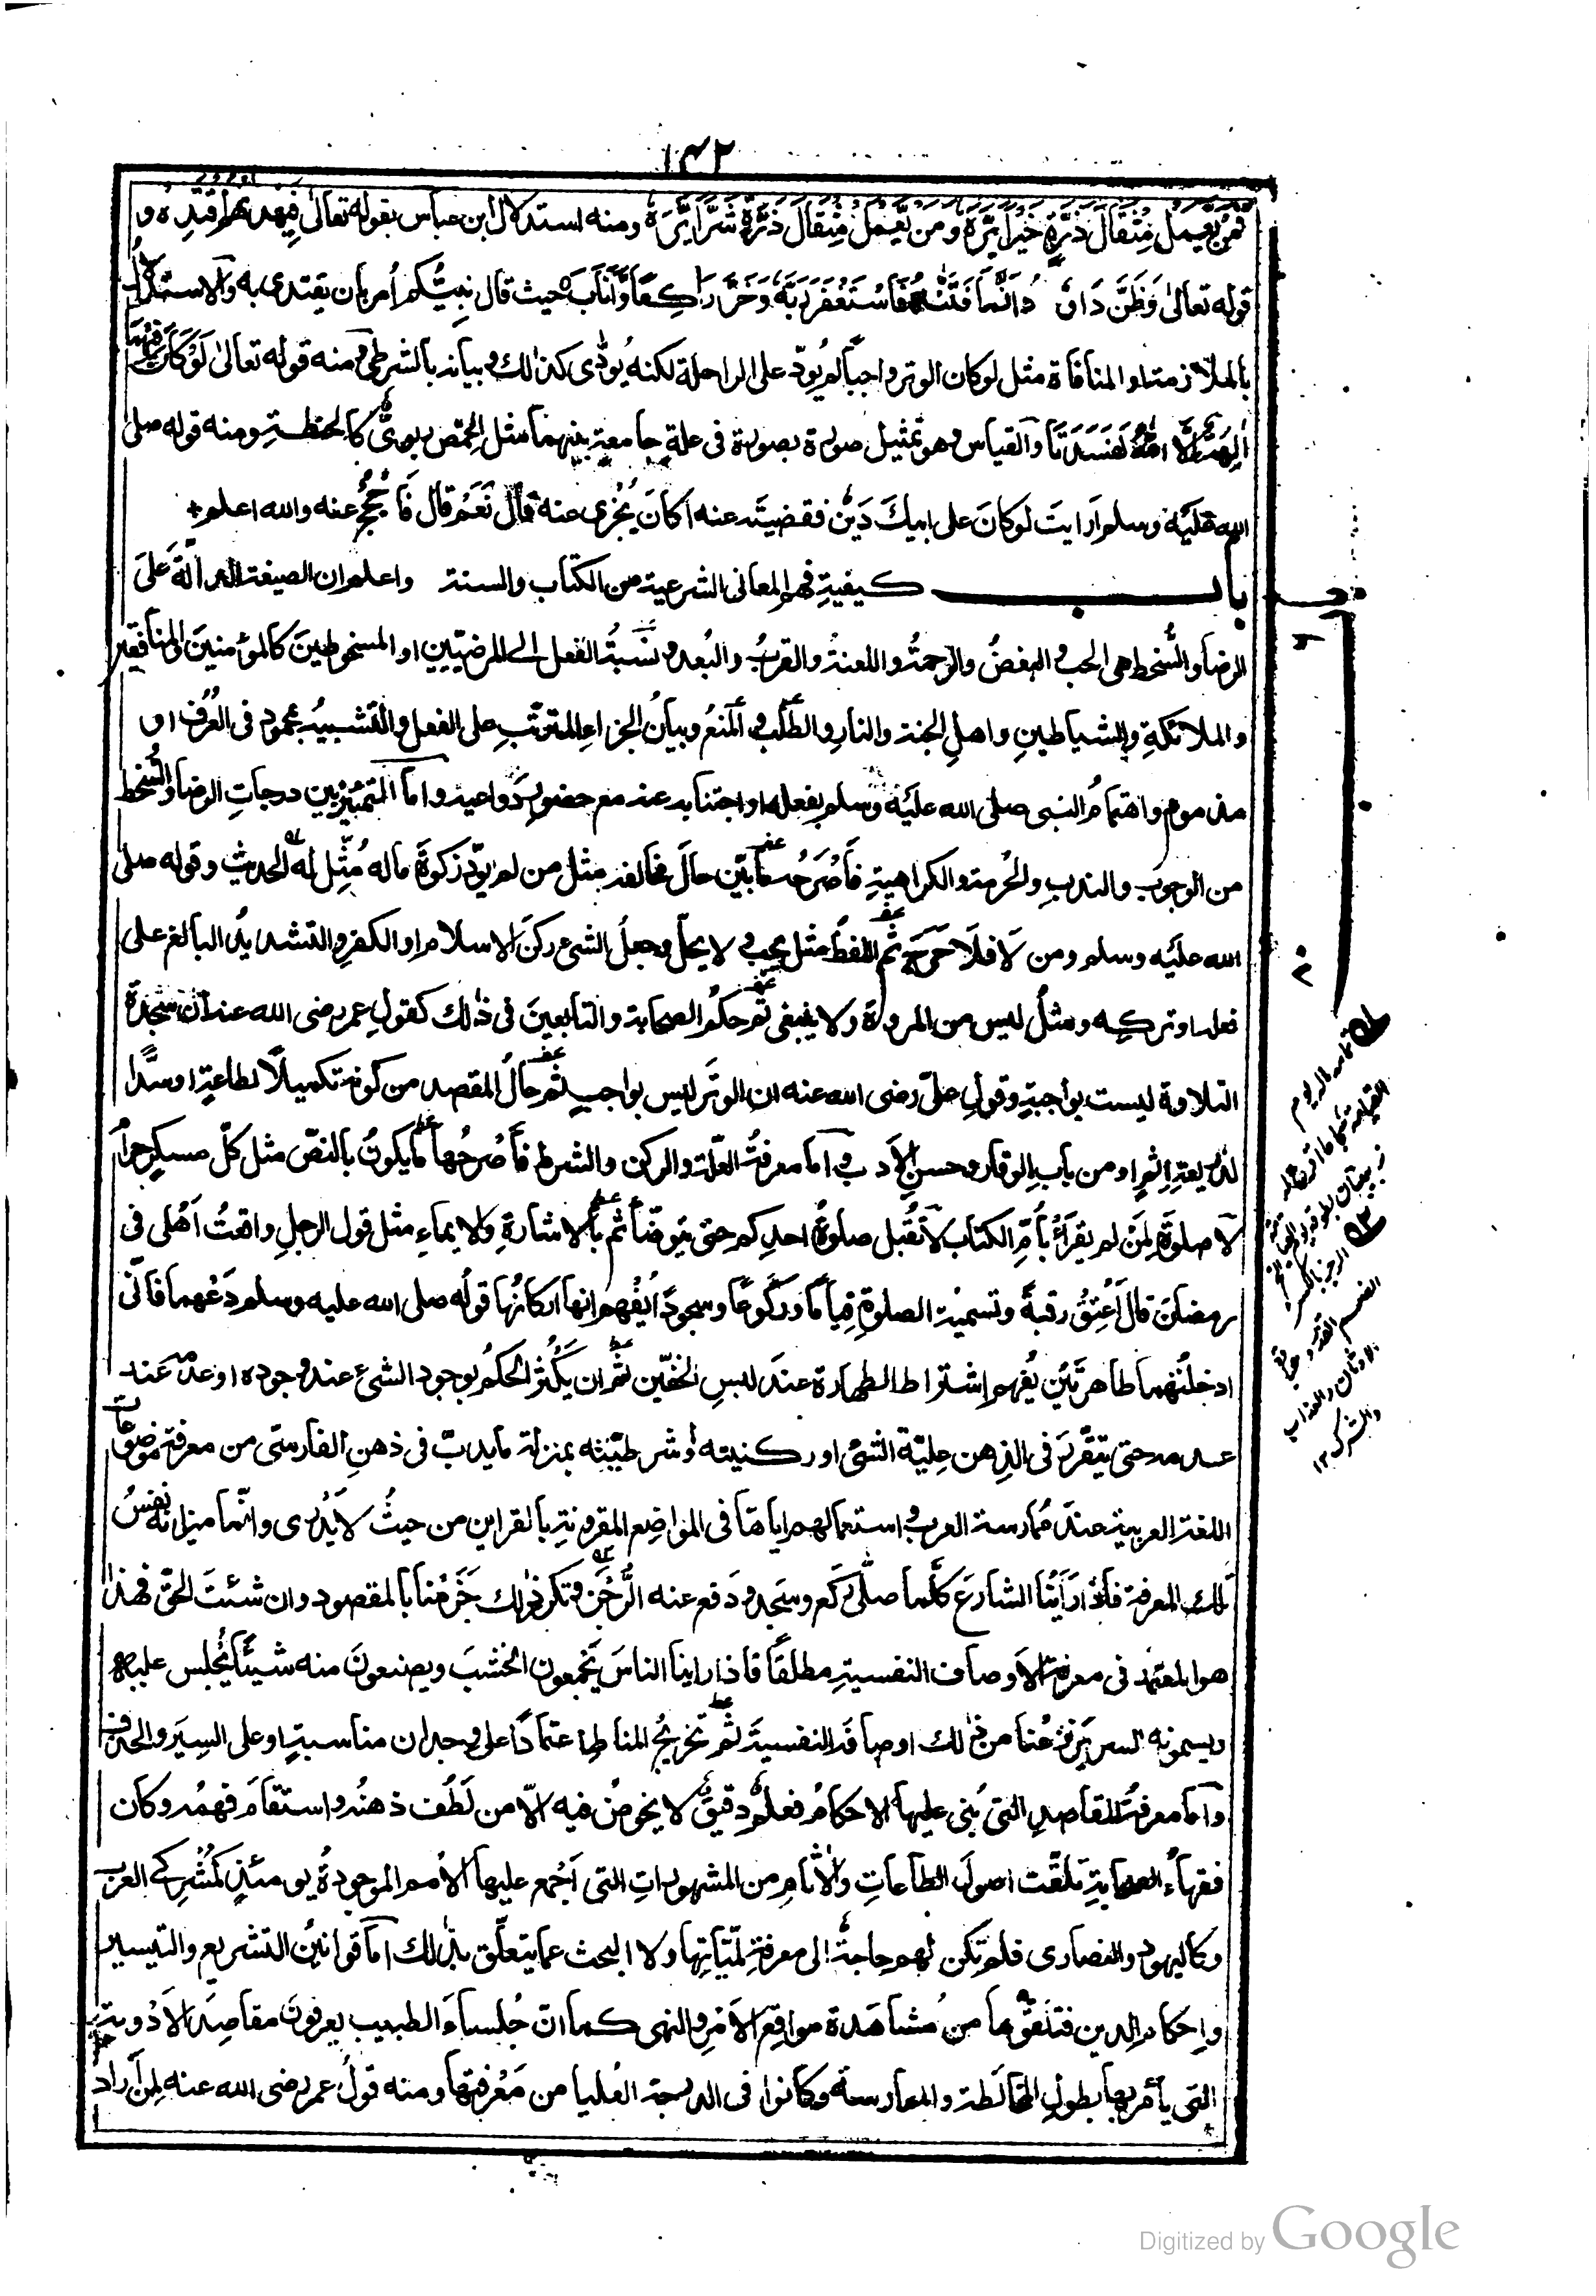 ١٤٢
فَمَنْ يَّعْمَلْ مِثْقَالَ ذَرَّةٍ خَيْرًا يَّرَهٗ ومن يَّعْمَلْ مِثْقَالَ ذَرَّةٍ شَرًّا يَّرَهٗ ومنه استدلال ابن عباس بقوله تعالىٰ فَبِهُدٰىهُمُ اقْتَدِهْ و
قوله تعالىٰ وَظَنَّ دَاوٗدُ اَنَّمَا فَتَنّٰهُ فَاسْتَغْفَرَ رَبَّهٗ وَخَرَّ رَاكِعًا وَّاَنَابَ حيث قال نبيُّكم اُمر بان يقتدى به والاستدلالُ
بالملازمة او المنافاة مثل لو كان الوتر واجبًا لم يُودّ على الراحلة لكنه يُودّى كذٰلك وبيانه بالشرطي ومنه قوله تعالىٰ لَوْ كَانَ فِيْهِمَا
اٰلِهَةٌ اِلَّا اللهُ لَفَسَدَتَا والقياس وهو تمثيل صورة بصورة فى علة جامعة بينهما مثل الحِمّص ربوىٌّ كالحنطة ومنه قوله صلى
الله عَلَيْه وسلم ارايتَ لو كانَ على ابيكَ دَيْنٌ فقضيتَه عنه اكانَ يُجْزى عنه قال نَعَمْ قال فَاحْجُجْ عنه والله اعلم +
باب كيفيةِ فهم المعانى الشرعية من الكتاب والسنة واعلم ان الصيغة الدالّةَ عَلىَ
الرضا والسُّخط هى الحب والبغضُ والرحمةُ واللعنة والقربُ والبُعد ونسبةُ الفعل الى المرضيّيِن او المسخوطينَ كالمؤمنينَ والمنافقين
والملائكةِ والشياطينِ واهلِ الجنة والنارِ والطلبُ والمنعُ وبيانُ الجزاءِ المترتّبِ على الفعل والتشبيهُ بمحمود فى العُرف او
مذموم واهتمامُ النبى صلى الله عليه وسلم بفعله او اجتنابه عنه مع حضورِ دَواعيه واما التمييز بين درجاتِ الرضا والسُّخط
من الوجوبِ والندبِ والحُرمة والكراهيةِ فَاَصْرَحُه ما بيّن حالَ مخالفه مثل من لم يودّ زكوةَ ماله مُثِّل له الحديث وقوله صلى
الله عليه وسلم ومن لَا فلَا حَرَجَ ثم اللفظُ مثل يجب ولا يحلّ وجعلُ الشئ ركنَ الاسلام او الكفرِ والتشديدُ البالغ على
فعله او تركه ومثلُ ليس من المروءة ولا ينبغى ثم حكمُ الصحابة والتابعينَ فى ذٰلك كقولِ عمر رضى الله عنه ان سجدة
التلاوة ليست بواجبةٍ وقولِ علىّ رضى الله عنه ان الوترَ ليس بواجبٍ ثم حالُ المقصد من كونه تكميلًا لطاعةٍ او سدًّا
لذريعةِ اِثمٍ او من بابِ الوقارِ وحسنِ الادب واما معرفةُ العلّة والركن والشرط فاَصْرحُها ما يكونُ بالنصّ مثل كلّ مسكرٍ حرامٌ
لا صلوٰةَ لِمَنْ لم يقرَأْ بأُمّ الكتاب لا تُقبل صلوٰةُ احدِكم حتى يتوضّأ ثم بالاشارةِ والايماءِ مثل قول الرجلِ واقعتُ اَهْلى فى
رمضانَ قال اَعْتِقْ رقبةً وتسميةِ الصلوٰةِ قيامًا وركُوعًا وسجودًا يُفهم انها اركانُها قولُه صلى الله عليه وسلم دَعْهما فانّى
ادخلتُهما طاهرتَيْن يُفهم اشتراط الطهارة عندَ لبسِ الخفّين ثم ان يكْثُر الحكمُ بوجود الشئ عند وجوده او عدمه عند
عدمه حتى يتقرّرَ فى الذِهن عِلّيّة الشئ او ركنيته او شرطيّته بمنزلة ما يدبّ فى ذهنِ الفارسىّ من معرفة موضوعات
اللغة العربية عندَ مُمارسة العرب واستعمالهم اياها فى المواضِع المقرونةِ بالقراين من حيثُ لا يَدْرى وانّما ميزانه نفسُ
تلك المعرفة فاذا رَاَيْنا الشارعَ كلّما صلّى ركع وسجد ودفع عنه الرُّجْزَ وتكرر ذٰلك جَزَمْنا بالمقصود وان شئتَ الحقّ فهذا
هو المعتمد فى معرفة الاوصاف النفسيةِ مطلقًا فاذا راينا الناسَ يَجْمعون الخشبَ ويصنعونَ منه شيئًا يُجلس عليه
ويسمونه السرير نزعنا من ذٰلك اوصافَه النفسيةَ ثم تخريجُ المناطِ اعتمادًا على وجدان مناسبةٍ او على السِيَر والحذف
واما معرفةُ المقاصدِ التى بُنى عليها الاحكامُ فعلمٌ دقيقٌ لا يخوض فيه الّا من لَطُف ذهنُه واستقامَ فهمُه وكان
فقهاءُ الصحابةِ تلقّت اصولَ الطاعاتِ والاٰثامِ من المشهوراتِ التى اَجْمع عليها الاُمم الموجودةُ يومئذٍ كمُشْركى العرب
وكاليهود والنصارى فلم تكن لهم حاجةٌ الى معرفةِ لمّيّاتِها ولا البحث عما يتعلّق بذٰلك اما قوانينُ التشريع والتيسير
واحكام الدين فتلقّوها من مُشاهَدة مواقعِ الاَمْرِ والنهى كما انّ جُلساءَ الطبيب يعرفونَ مقاصِدَ الاَدْوية
التى يأمر بها بطولِ المخالَطة والممارسة وكانوا فى الدرجة العُليا من مَعْرفتها ومنه قولُ عمر رضى الله عنه لِمَنْ اراد
الرجز بالكسر
والشرك ١٢
Digitized by Google